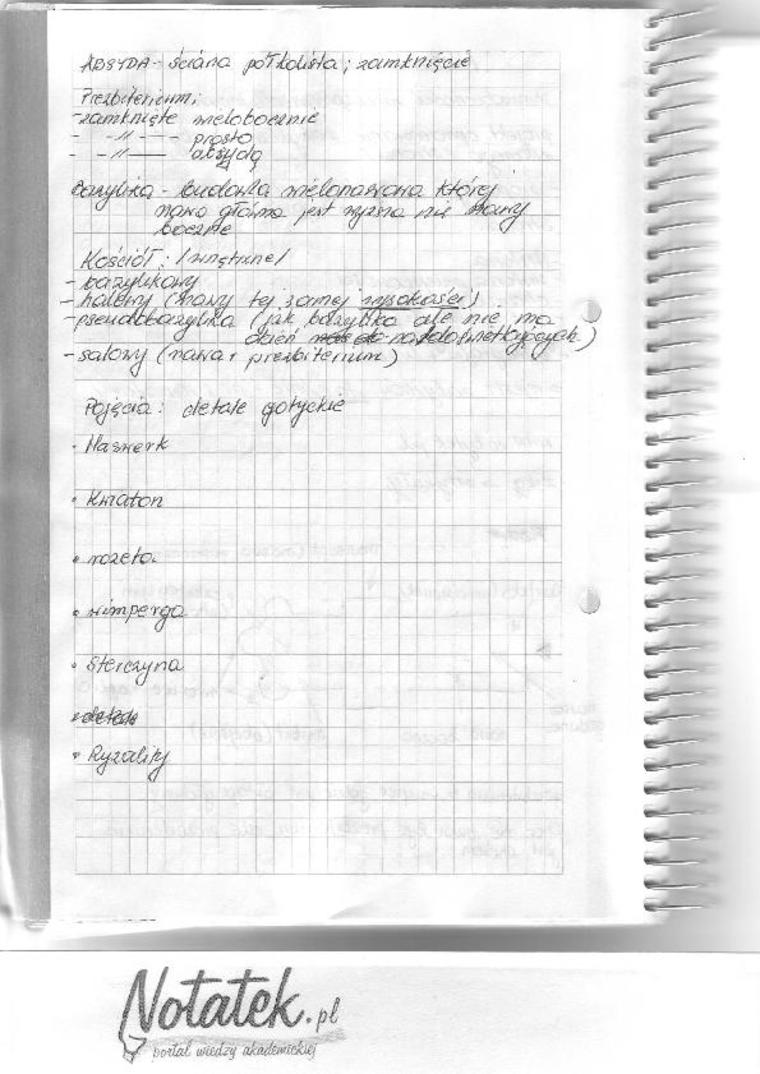 ABSYDA - ściana półkolista; zamknięcie
Prezbiterium:
- zamknięte wielobocznie
- -//- prosto
- -//- absydą
Bazylika - budowla wielonawowa której
nawa główna jest wyższa niż nawy
boczne
Kościół: /wnętrze/
- bazylikowy
- halowy (nawy tej samej wysokości)
- pseudobazylika (jak bazylika ale nie ma
okien naddoświetlających)
- salowy (nawa + prezbiterium)
Pojęcia: detale gotyckie
• Maswerk
• Kwiaton
• rozeta
• wimperga
• Sterczyna
• detale
• Ryzality
Notatek.pl
portal wiedzy akademickiej